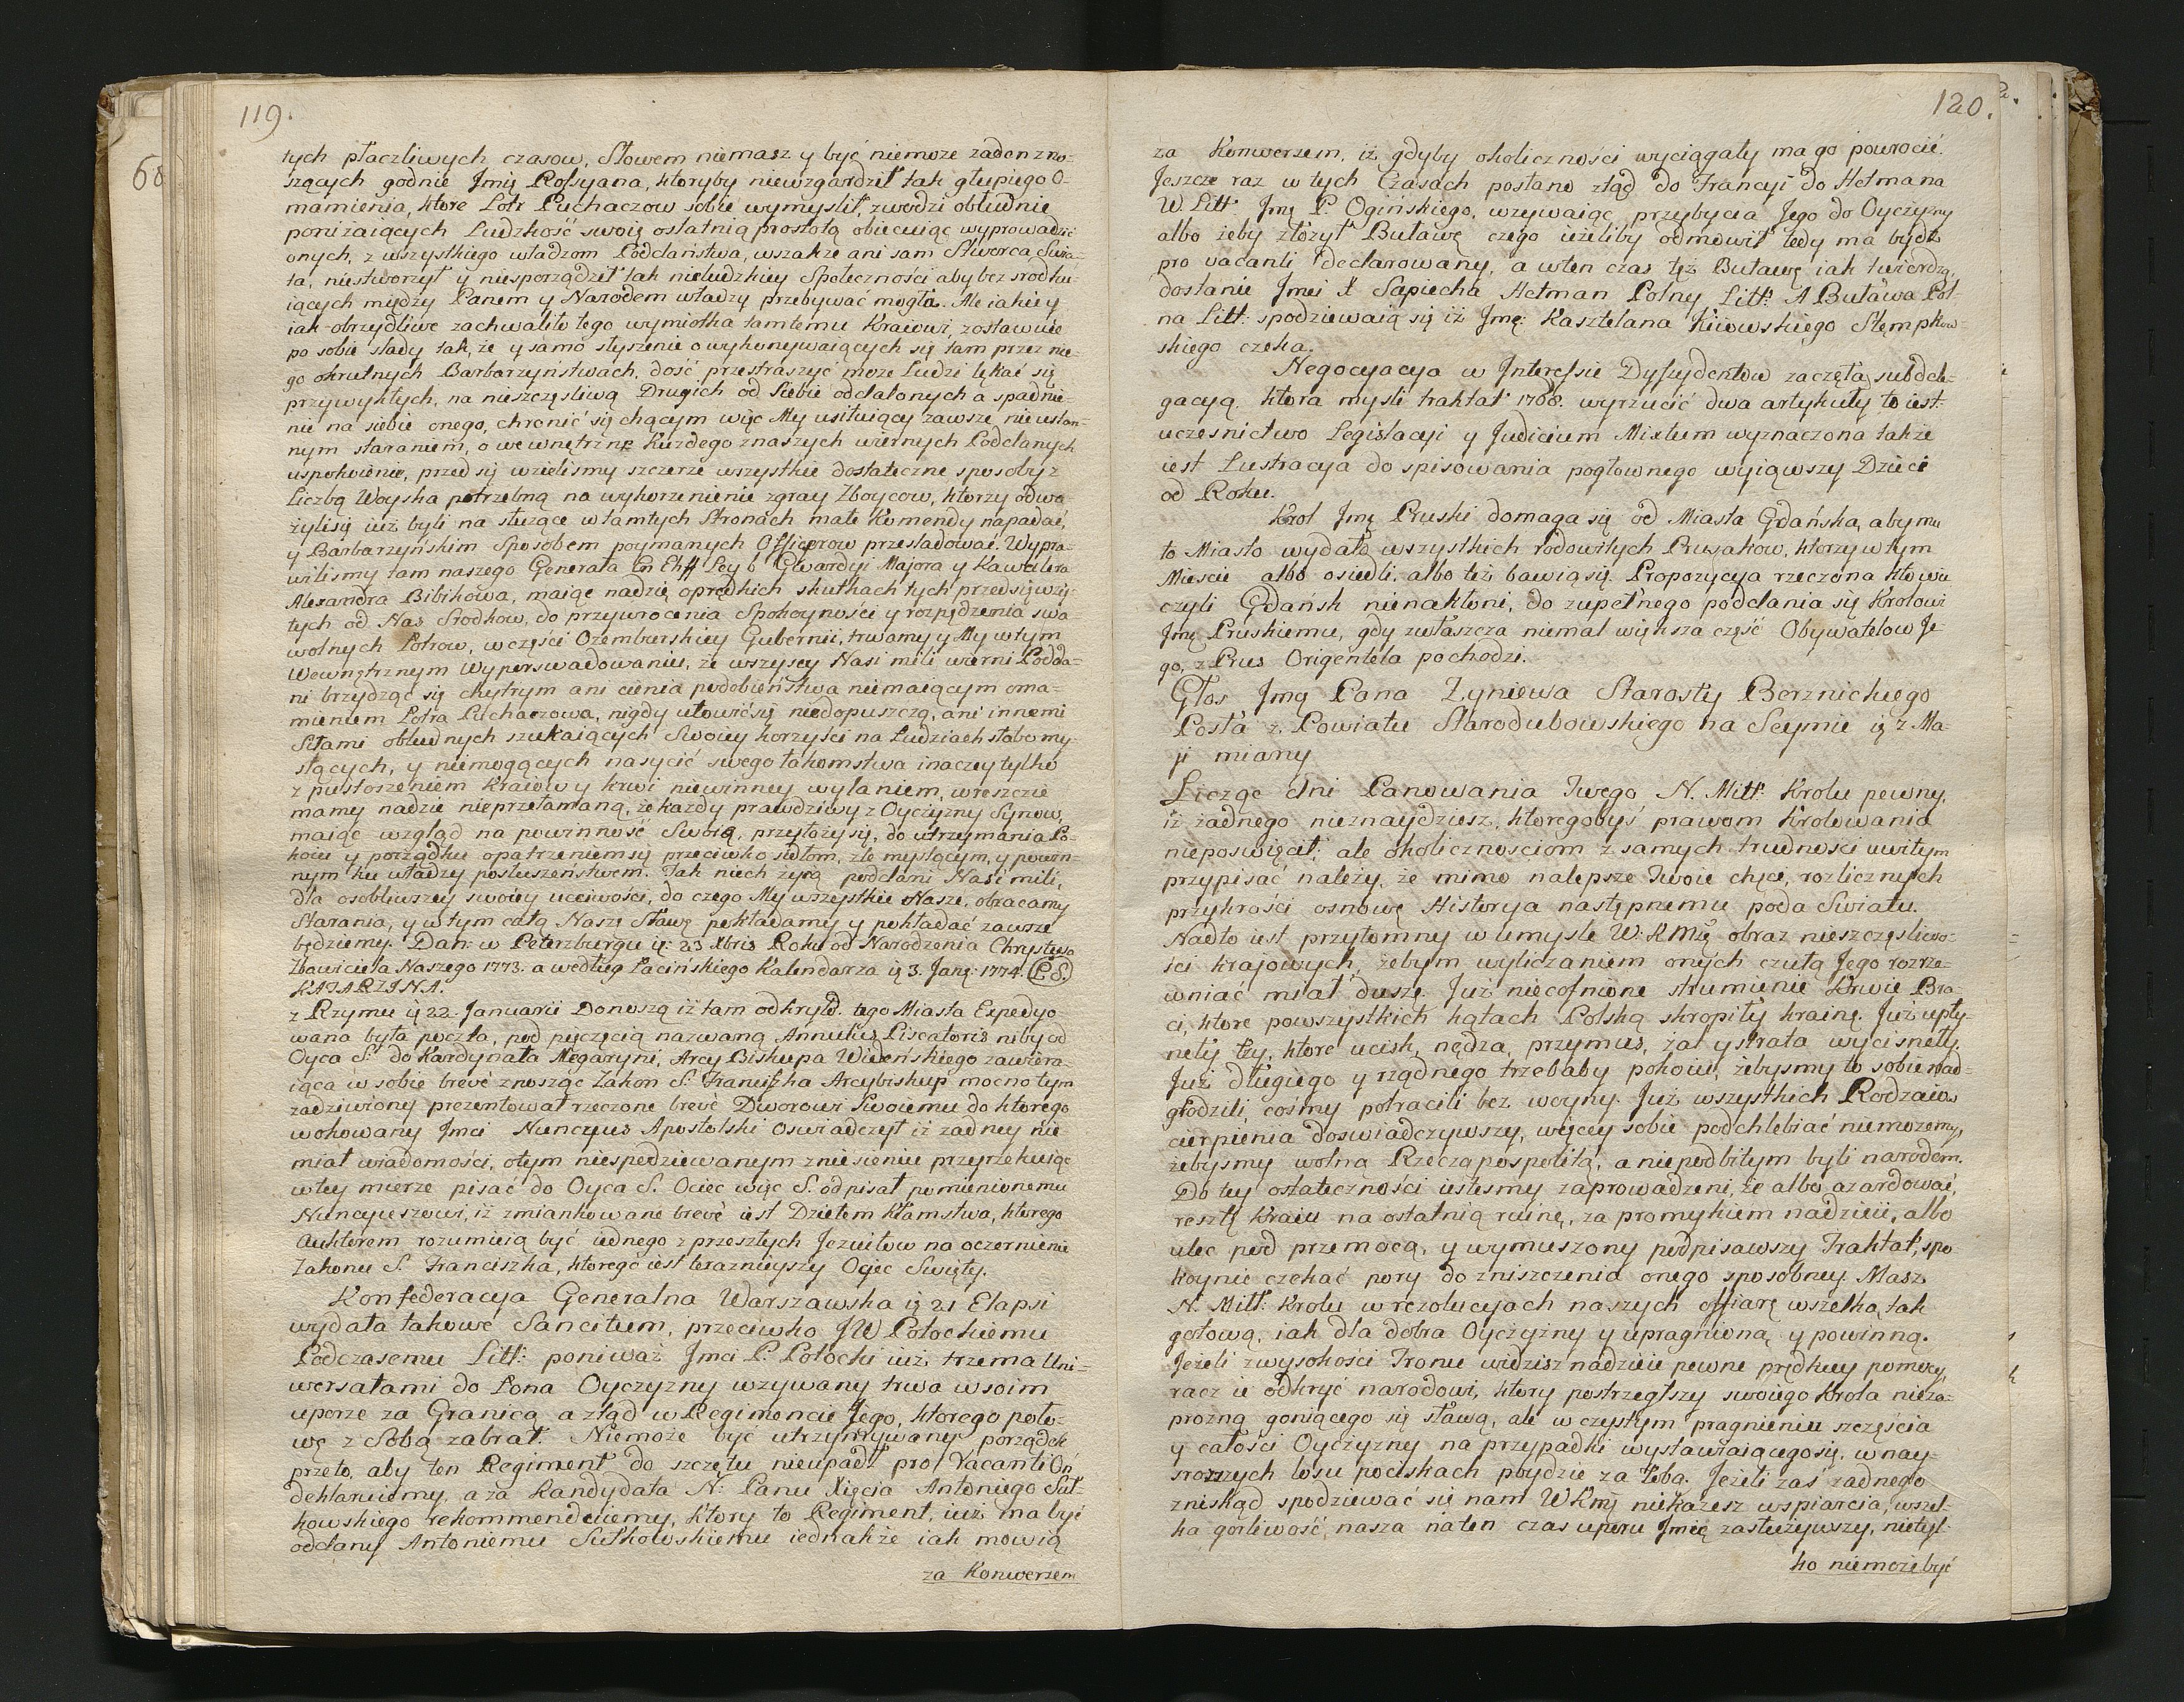 119.
tych płaczliwych czasow, Słowem niemasz y być niemoze zaden zno-
szących godnie Jmię Rossyana, ktoryby niewzgardził tak głupiego O-
mamienia, ktore Lotr Puchaczow sobie wymyslił, zwodzi obłudnie
poniżaiących Ludzkość swoię ostatnią prostotą obiecuiąc wyprowadzić
onych, z wszystkiego władzom Poddaństwa, wszakże ani sam Stworca Swia-
ta, niestworzył y niesporządził tak nieludzkiey Społeczności aby bez srodku-
iących między Panem y Narodem władzy przebywać mogła. Ale iakie y
iak obrzydliwe zachwaliło tego wymiotka tamtemu Kraiowi, zostawuie
po sobie slady tak, że y samo słyszenie o wykonywaiących się tam przez nie-
go okrutnych Barbarzyństwach, dość przestraszyć moze Ludzi lękać się
przywykłych, na nieszczęsliwą Drugich od Siebie oddalonych a spadnie-
nie na siebie onego, chronić się chącym więc My usiłuiący zawsze nieustan-
nym staraniem, o wewnętrzne Kazdego znaszych wiernych Poddanych
uspokoienie, przed się wzielismy szczerze wszystkie dostateczne sposoby z
Liczbą Woyska potrzebną na wykorzenienie zgray Zboycow, ktorzy odwa
żylisię iuż byli na służące w tamtych Stronach małe Komendy napadać,
y Barbarzyńskim Sposobem poymanych Officerow przesladować. Wypra-
wilismy tam naszego Generała En Chff Ley b Gwardyi Majora y Kawalera
Alexandra Bibikowa, maiąc nadzię oprędkich skutkach tych przedsięwzię-
tych od Nas Srodkow, do przywrocenia Spokoyności y rozpędzenia swa
wolnych Lotrow, wczęści Oremburskiey Gubernii, trwamy y My wtym
Wewnętrznym Wyperswadowaniu, że wszyscy Nasi mili wierni Podda-
ni brzydząc się chytrym ani cienia podobieństwa niemaiącym oma-
mieniem Lotra Puchaczowa, nigdy ułowić się niedopuszczą, ani innemi
Siłami obłudnych szukaiących Swoiey korzyści na Ludziach słabo my-
slących, y niemogących nasycić swego łakomstwa inaczey tylko
z pustoszeniem Kraiow y krwi niewinney wylaniem, wreszcie
mamy nadzie nieprzełamaną, że kazdy prawdziwy z Oyczyzny Synow,
maiąc wzgląd na powinność Swoią, przyłoży się, do utrzymania Po-
koiu y porządku opatrzeniem się przeciwko sidłom, zle myslącym, y powin-
nym ku władzy posłuszeństwem. Tak niech żyią poddani Nasi mili,
dla osobliwszey swoiey uczciwości, do czego My wszystkie Nasze, obracamy
Starania, y wtym całą Naszę Sławę pokładamy y pokładać zawsze
będziemy. Dan: w Peterzburgu ię: 23 Xbris Roku od Narodzenia Chrystusa
Zbawiciela Naszego 1773. a według Łacińskiego Kalendarza ię 3. Janę: 1774. (L.S.)
KATARZINA.
z Rzymu ię 22. Januarii Donoszą iż tam odkryło. tego Miasta Expedyo-
wana była poczta, pod pięczęcią nazwaną Annulus Piscatoris niby od
Oyca S. do Kardynała Megaryni, Arcy Biskupa Wideńskiego zawiera-
iąca w sobie brevè znosząc Zakon S. Franciszka Arcybiskup mocno tym
zadziwiony prezentował rzeczone brevè Dworowi Swoiemu do ktorego
wokowany Jmci Nunczus Apostolski Oswiadczył iż zadney nie
miał wiadomości, otym niespodziewanym zniesieniu przyrzekaiąc
wtey mierze pisać do Oyca S. Ociec więc S. odpisał pomienionemu
Nuncyuszowi, iż zmiankowane brevè iest Dziełem Kłamstwa, ktorego
Aukterem rozumieią być iednego z przeszłych Jezuitow na oczernienie
Zakonu S. Franciszka, ktorego iest terazniejszy Ociec Swięty.
Konfederacya Generalna Warszawska ię 21 Elapsi
wydała takowe Sancitum, przeciwko JW Potockiemu
Podczasemu Litt: poniważ Jmci P. Potocki iuż trzema Uni-
wersałami do Łona Oyczyzny wzywany trwa wsoim
uporze za Granicą a ztąd w Regimencie Jego, ktorego poło-
wę z Sobą zabrał. Niemoże być utrzymywany porządek
przeto, aby ten Regiment do szczętu nieupadł pro Vacanti On
deklaruiemy, a za Kandydata N: Panu Xięcia Antoniego Suł-
kowskiego rekommenduiemy, Ktory to Regiment, iuż ma być
oddany Antoniemu Sułkowskiemu iednakże iak mowią
za Konwersem
120.
za Konwersem, iż gdyby okoliczności wyciągały ma go powrocić.
Jeszcze raz w tych Czasach posłano ztąd do Francyi do Hetmana
W. Litt. Jmę P. Ogińskiego, wzywaiąc przybycia Jego do Oyczyzny
albo żeby złożył Buławę czego ieżeliby odmowił tedy ma bydz
pro vacanti declarowany, a wten czas tęż Buławę iak twierdzą,
dostanie Jmci X Sapiecha Hetman Polny Litt: A Buława Pol-
na Litt: spodziewaią się iż Jmę: Kasztelana Kiiowskiego Stęmpkow-
skiego czeka.
Negocyacya w Interessie Dyssydentow zaczęta subdele-
gacyą, ktora mysli traktat 1768. wyrzucić dwa artykuły to iest:
uczesnictwo Legislacyi y Judicium Mixtum wyznaczona także
iest Lustracya do spisowania pogłownego wyiąwszy Dzieci
od Roku.
Krol Jmę Pruski domaga się od Miasta Gdańska, aby mu
to Miasto wydało wszystkich rodowitych Prusakow, ktorzy w tym
Miescie albo osiedli, albo też bawią się. Propozycya rzeczona kto wie
czyli Gdańsk nienakłoni, do zupełnego poddania się Krolowi
Jmę Pruskiemu, gdy zwłaszcza niemal większa część Obywatelow Je-
go, z Prus Origentela pochodzi.
Głos Jmę Pana Zyniewa Starosty Berznickiego
Posła z Powiatu Starodubowskiego na Seymie ię z Ma-
ji miany
Licząc dni Panowania Twego N. Mitt. Krolu pewny,
iż żadnego nieznaydziesz, ktoregobyś prawom Krolowania
nieposwięcił; ale okolicznosciom z samych trudności uwitym
przypisać należy, że mimo nalepsze Twoie chęce, rozlicznych
przykrości osnowę Historya następnemu poda Swiatu.
Nadto iest przytomny w umysle W: K Mię obraz nieszczęsliwo-
ści krajowych, żebym wyliczaniem onych czułą Jego rozrze-
wniać miał duszę. Już niecofnione strumienie Krwie Bra-
ci, ktore powszystkich kątach Polską skropiły krainę. Już upły-
nęły łzy, ktore ucisk, nędza, przymus, żal y strata wycisnęły.
Już długiego y rządnego trzebaby pokoiu, żebysmy to sobie nad-
grodzili, cośmy potracili bez woyny. Już wszystkich Rodzaiow
cierpienia doswiadczywszy, więcey sobie podchlebiać niemożemy,
żebysmy wolną Rzecząpospolitą, a niepodbitym byli narodem.
Do tey ostateczności iestesmy zaprowadzeni, że albo azardować,
resztę Kraiu na ostatnią ruinę, za promykiem nadzieii, albo
uledz pod przemocą, y wymuszony podpisawszy Traktat, spo
koynie czekać pory do zniszczenia onego sposobney. Masz
N. Mitt: Krolu w rezolucyach naszych offiarę wszelką, tak
gotową, iak dla dobra Oyczyzny y upragnioną y powinną.
Jeżeli z wysokości Tronu widzisz nadzieie pewne prędkiey pomocy
racz ie odkryć narodowi, ktory postrzegłszy swoiego Krola nieza-
prozną goniącego się sławą, ale w czystym pragnieniu szczęścia
y całości Oyczyzny na przypadki wystawiaiącegosię, w nay-
srozszych losu pociskach poydzie za tobą. Jeżeli zaś zadnego
zniskąd spodziewać się nam WKmę niekażesz wspiarcia, wszel-
ka gorliwość, nasza naten czas uporu Jmię zasłużywszy, nietyl-
ko niemoże być